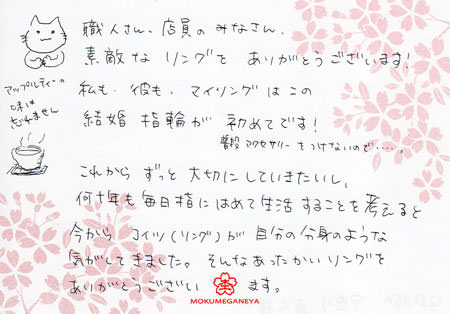 職人さん、店員のみなさん、
素敵なリングをありがとうございます!
私も、彼も、マイリングはこの
結婚指輪が初めてです!
普段アクセサリーをつけないので‥‥。
これからずっと大切にしていきたいし、
何十年も毎日指にはめて生活することを考えると
今からコイツ(リング)が自分の分身のような
気がしてきました。そんなあったかいリングを
ありがとうございます。
アップルティーの
味は
忘れません
MOKUMEGANEYA